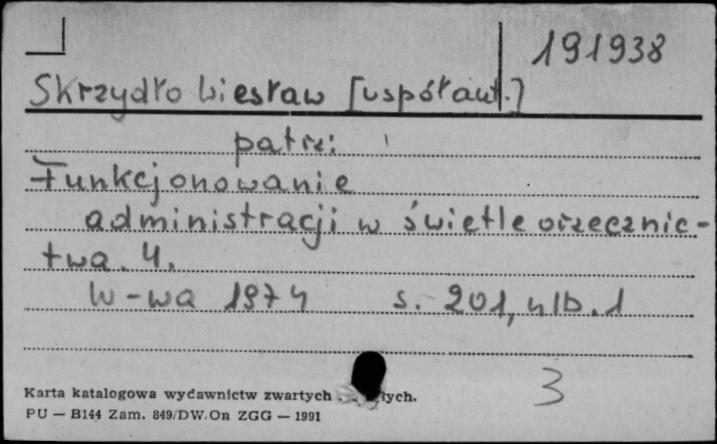 191938
Skrzydło Wiesław [współaut.]
patrz:
Funkcjonowanie
administracji w świetle orzecznic-
twa. 4.
W-wa 1974 s. 201, nlb. 1
3
Karta katalogowa wydawnictw zwartych
PU — B144 Zam. 849/DW.On ZGG — 1991